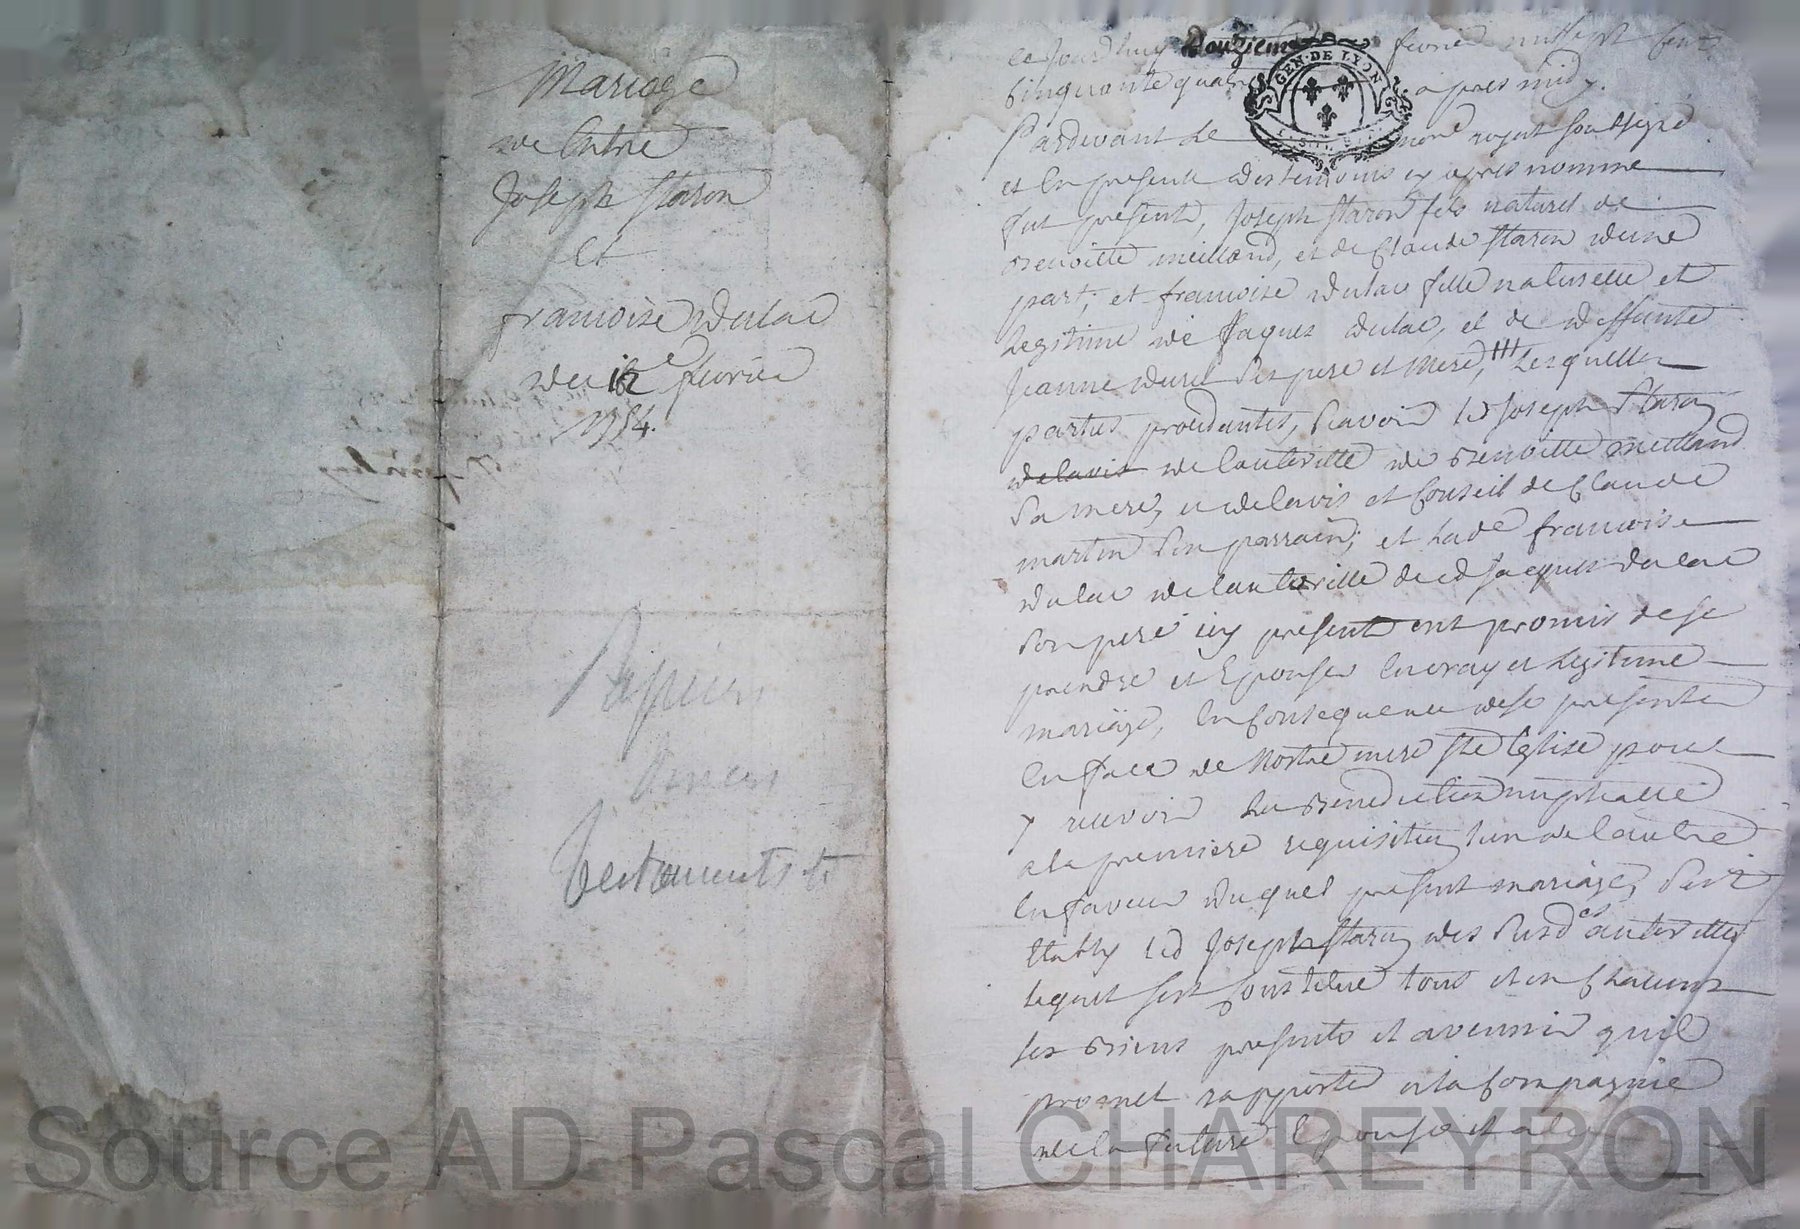 Mariage
de Entre
Joseph Staron
Et
francoise dulac
du 12e fevrier
1754.
Papiers
Anciens
Testaments &
ce Jourdhuy Douzieme fevrie mil sept Cent
Cinquante quatre apres midy.
Pardevant Le no.re royal soussigné
et En presence des temoins cy apres nommé
fut present, Joseph Staron fils naturel de
Benoitte meilland, et de Claude Staron d'une
part; et francoise dulac fille naturelle et
Legitime de Jaques dulac, et de deffunte
Jeanne Ses pere et Mere, Lesquelles
parties procedantes, Scavoir Led Joseph Staron
delavis de lautoritté de Benoitte meilland
Sa mere, et delavis et Conseil de Claude
martin Son parrain; et Lade francoise
dulac de lautoritté dud Jacques dulac
Son pere icy present ont promis de se
prendre et Epouser En vray et Legitime
mariage, En Consequence de se presenter
En face de Nostre mere Ste Eglise pour
y recevoir La Benediction nuptialle
a la premiere requisition lun de lautre
En faveur duquel present mariage, Sest
Etably Led Joseph Staron des Susd.es autorittés
lequel sest Constitué tous et un Chacuns
ses Biens presents et avennir quil
promet rapporter a la Compagnie
de la future Epouse et a la
Source AD Pascal CHAREYRON
GEN. DE LYON